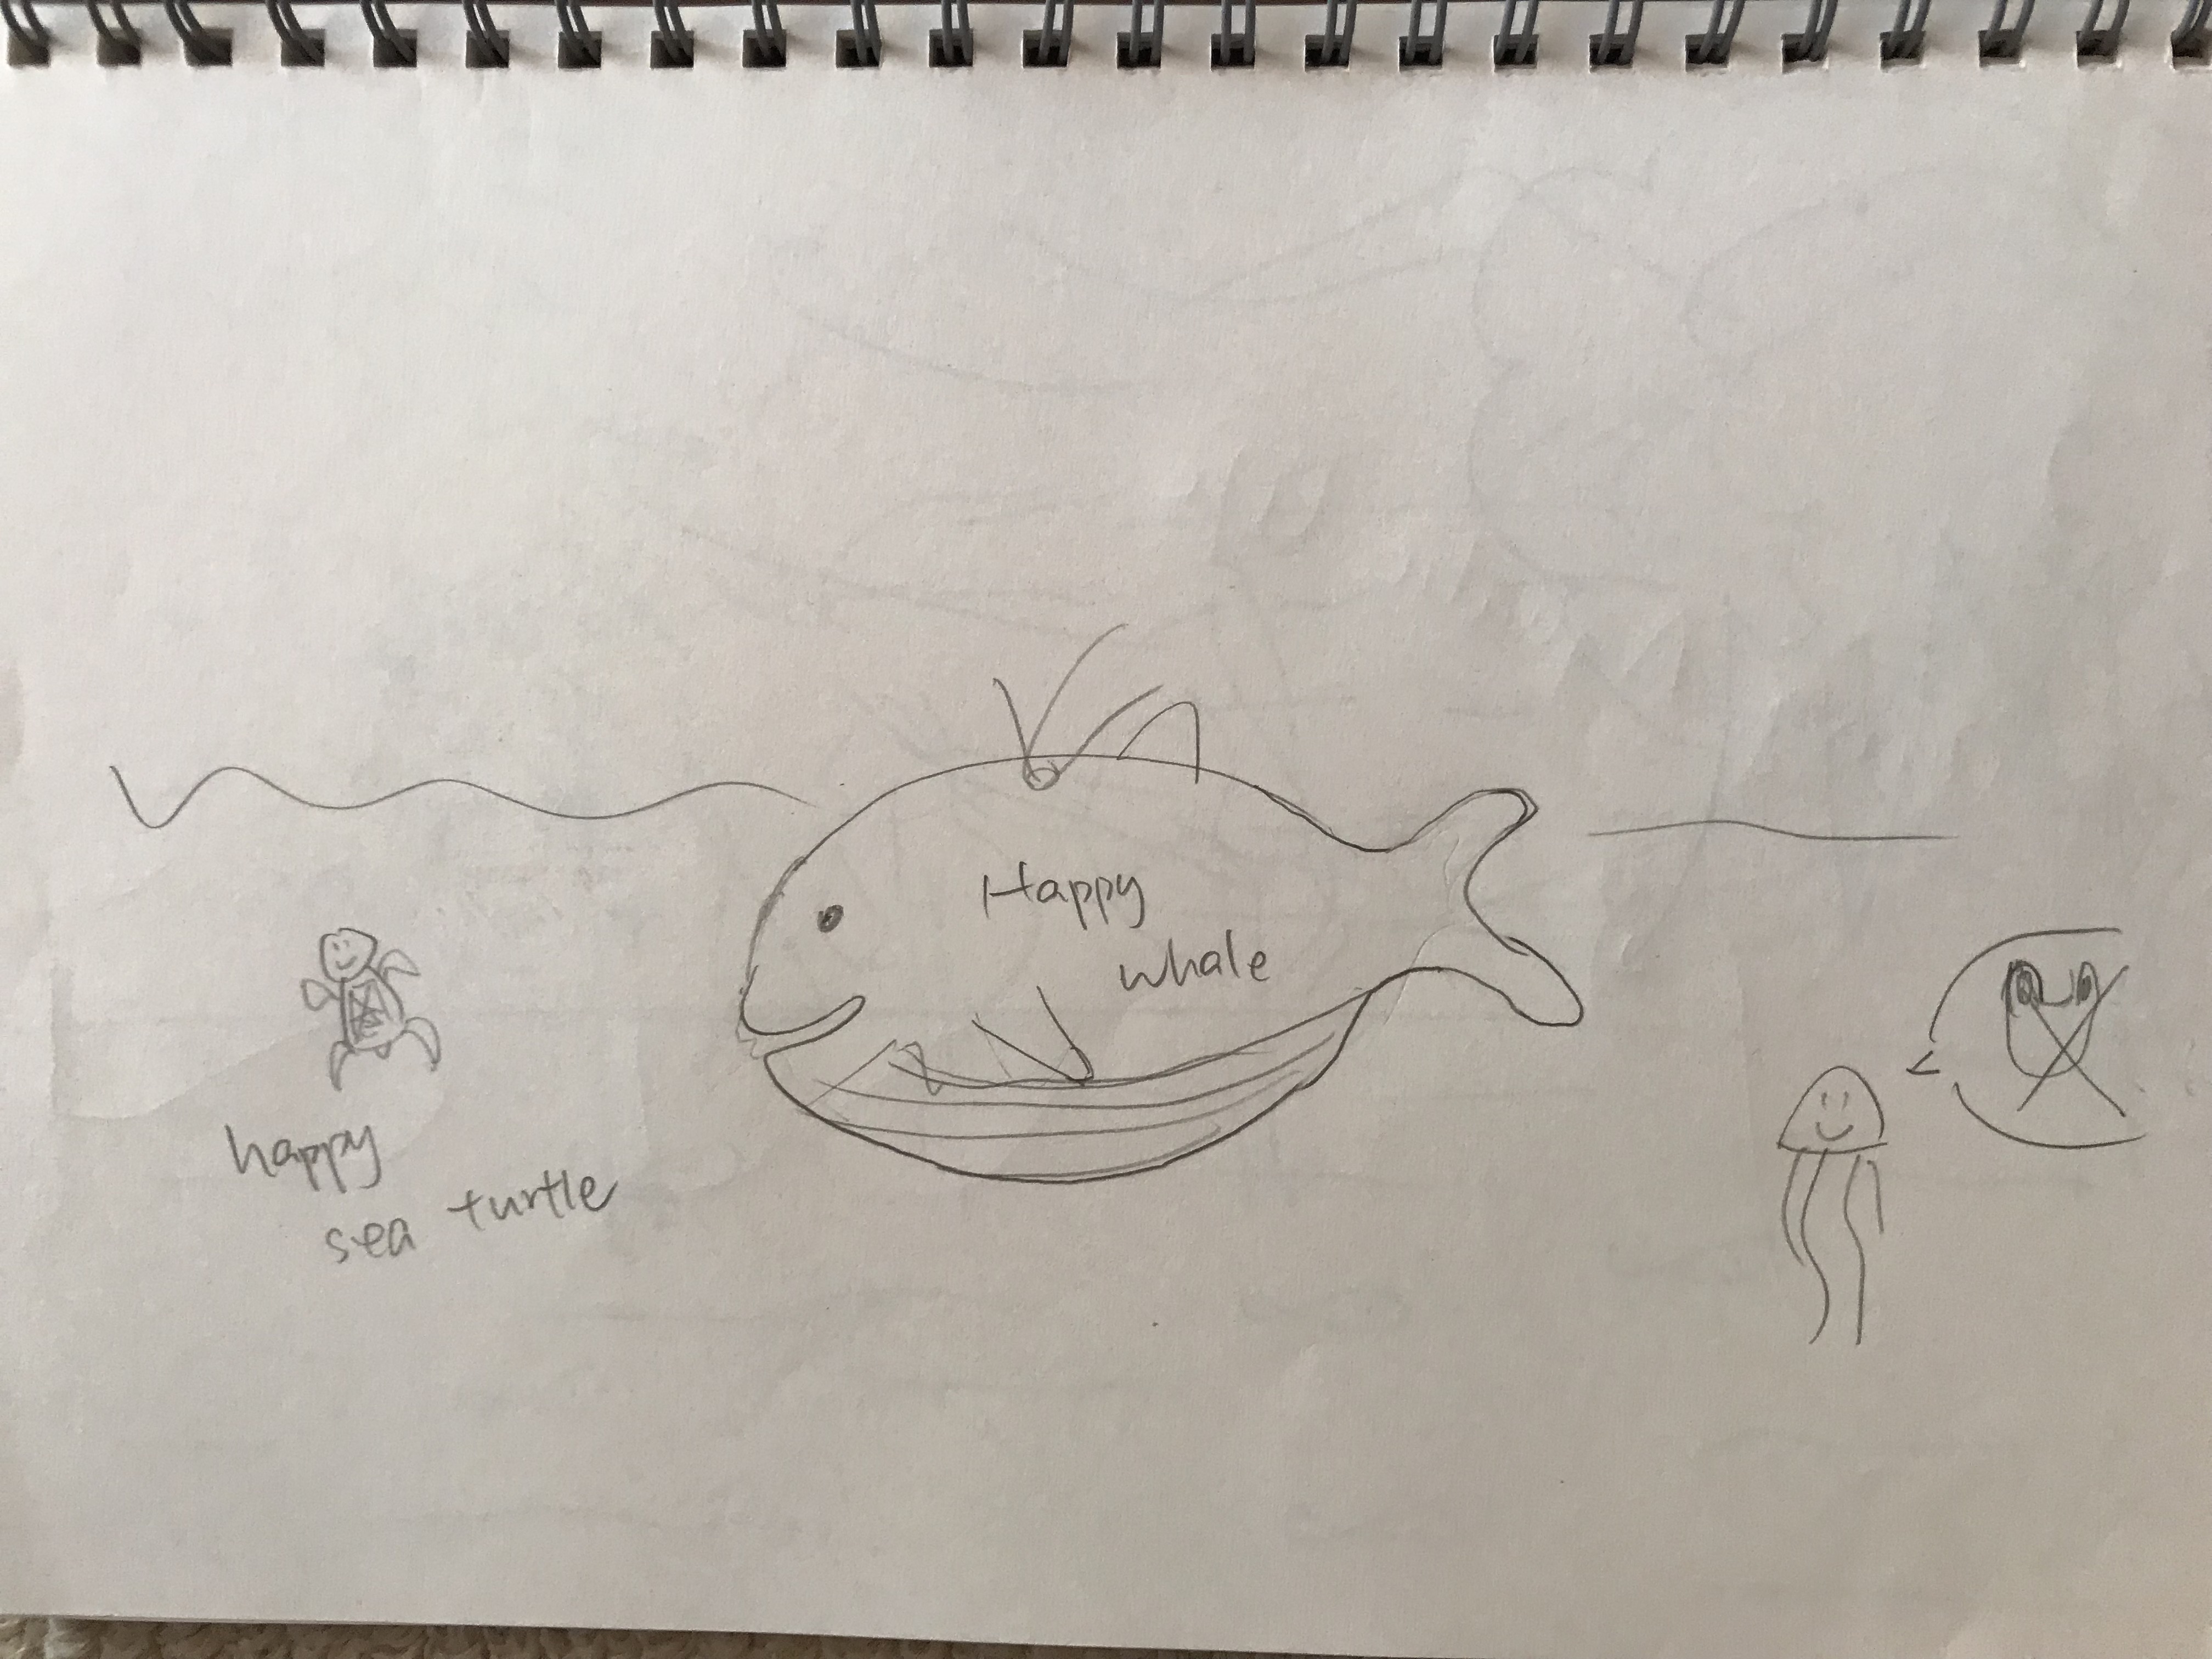 Happy
whale
happy
sea turtle